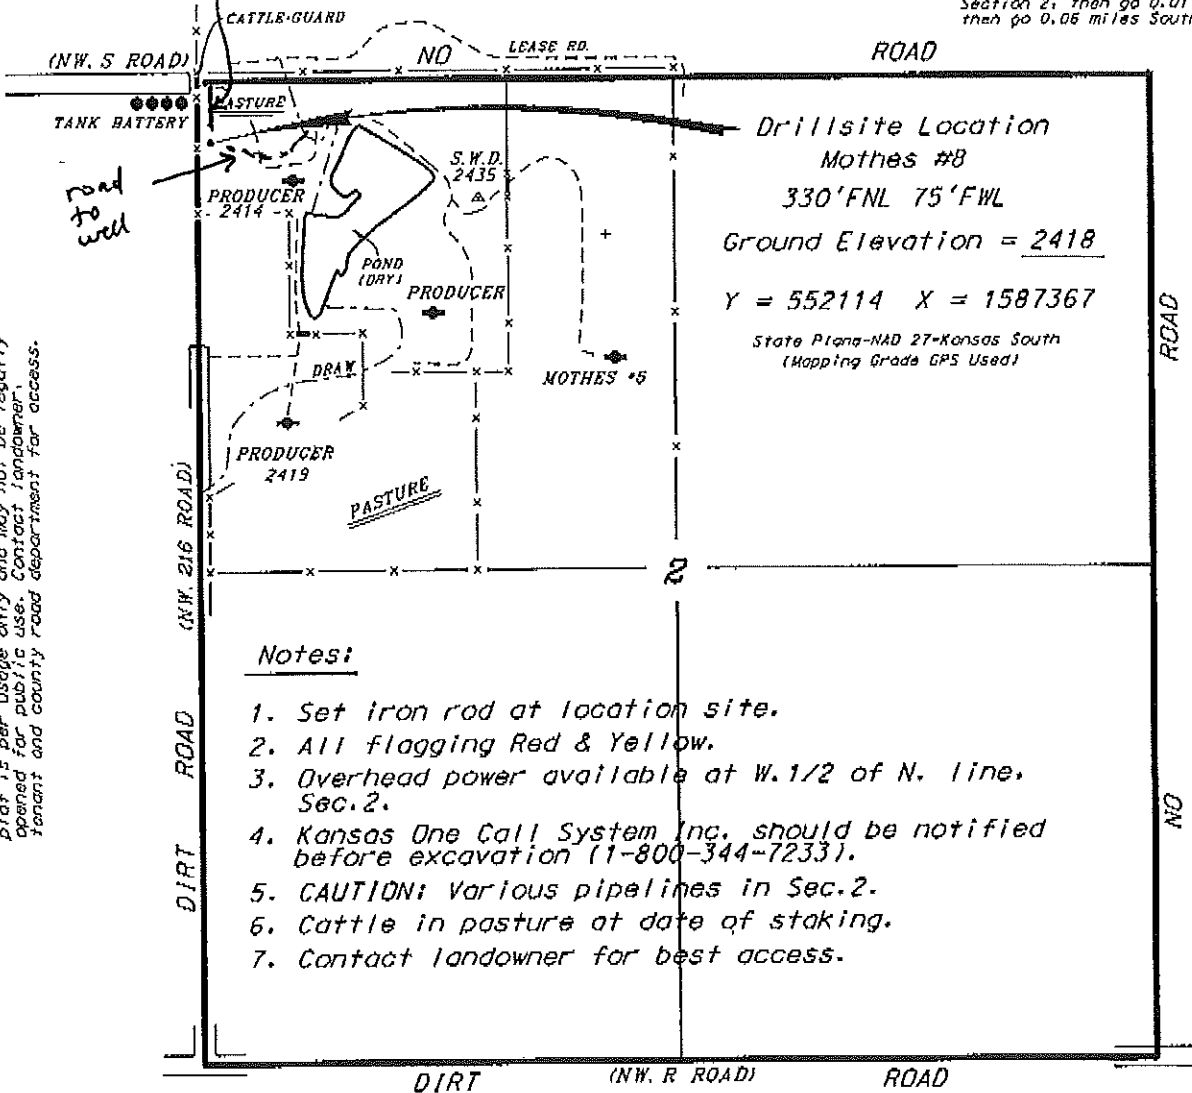 Section 2, then go 0.01
then go 0.06 miles South
CATTLE-GUARD
(NW. S ROAD)
NO
LEASE RD.
ROAD
TANK BATTERY
PASTURE
road
to
well
PRODUCER
2414
S.W.D.
2435
POND
(DRY)
PRODUCER
DRAW
PRODUCER
2419
MOTHES #5
PASTURE
Drillsite Location
Mothes #8
330'FNL 75'FWL
Ground Elevation = 2418
Y = 552114 X = 1587367
State Plane-NAD 27-Kansas South
(Mapping Grade GPS Used)
ROAD
NO
plat is per usage only and may not be legally
opened for public use. Contact landowner,
tenant and county road department for access.
(NW. 216 ROAD)
DIRT ROAD
2
Notes:
1. Set iron rod at location site.
2. All flagging Red & Yellow.
3. Overhead power available at W.1/2 of N. line,
Sec.2.
4. Kansas One Call System Inc. should be notified
before excavation (1-800-344-7233).
5. CAUTION: Various pipelines in Sec.2.
6. Cattle in pasture at date of staking.
7. Contact landowner for best access.
DIRT
(NW. R ROAD)
ROAD